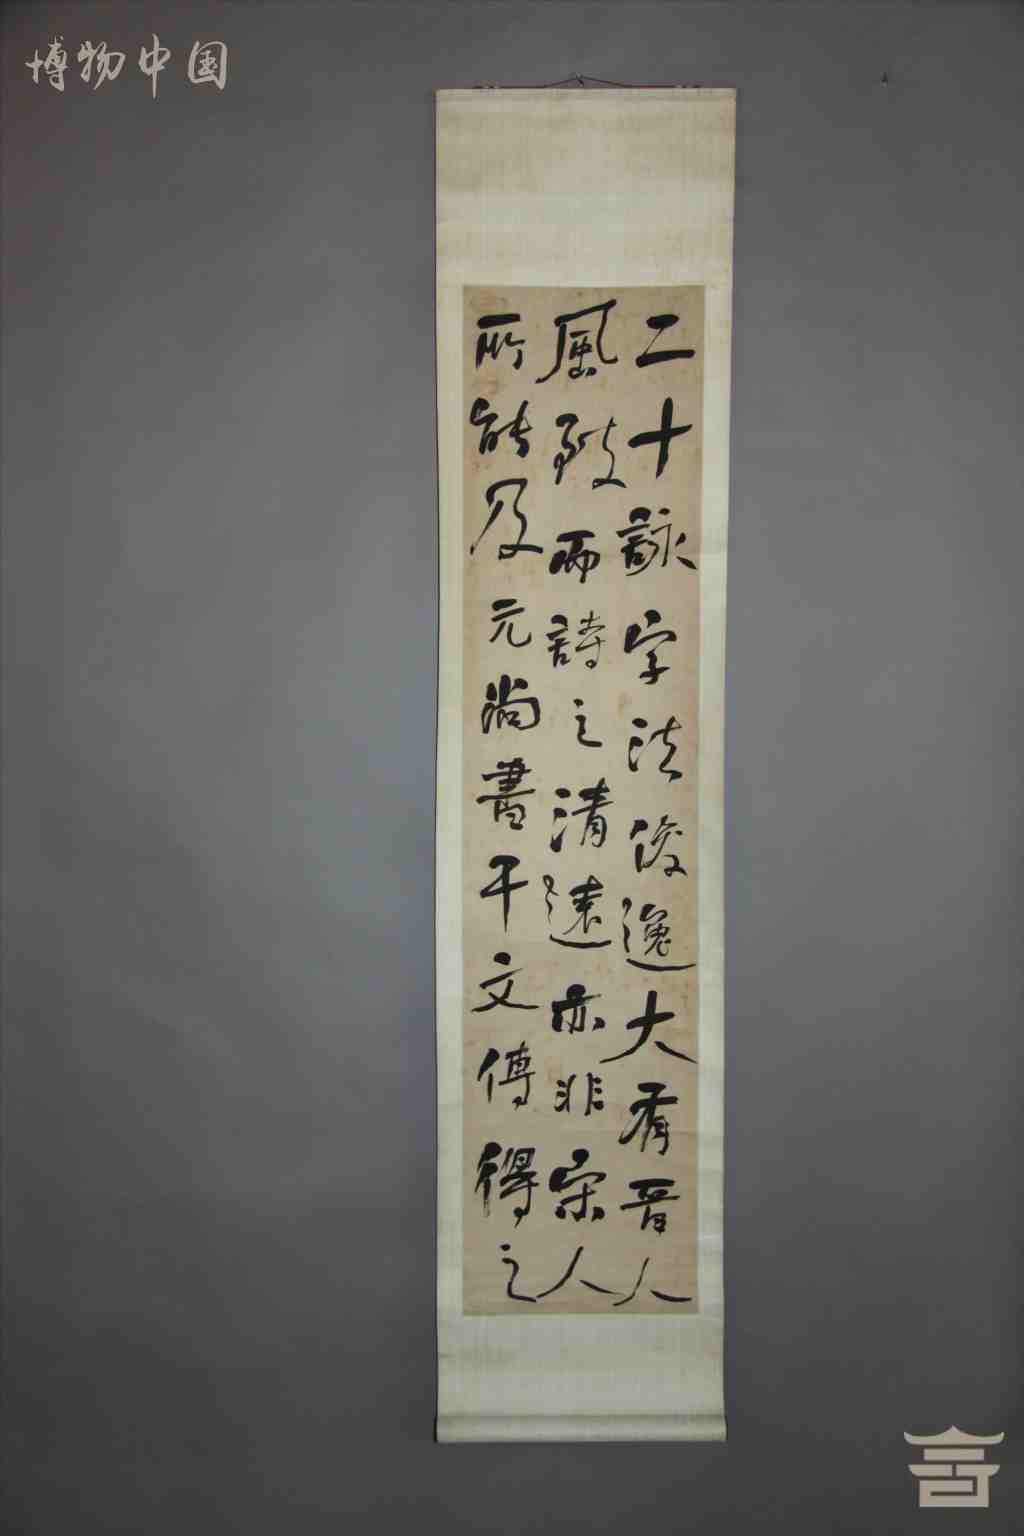 博物中国
二十詠字法俊逸大有晋人
風致而詩之清遠亦非宋人
所能及元尚書干文傳得之